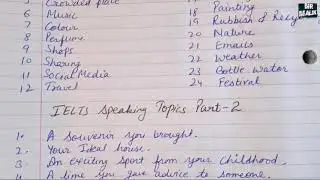 5 Crowded place
6 Music
7 Colour
8 Perfume
9 Shops
10 Sharing
11 Social Media
12 Travel
18 Painting
19 Rubbish & Recycl
20 Nature
21 Emails
22 Weather
23 Bottle Water
24 Festival
SIR REALIN
IELTS Speaking Topics Part-2
1. A souvenir you brought.
2. Your Ideal house.
3. An exciting sport from your childhood.
4. A time you gave advice to someone.